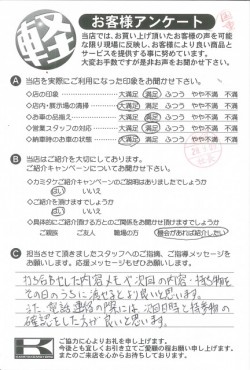 軽
お客様アンケート
当店では、お買い上げ頂いたお客様の声を可能
な限り現場に反映し、お客様により良い商品と
サービスを提供する事に努めています。
大変お手数ですが是非お声をお聞かせ下さい。
A 当店を実際にご利用になった印象をお聞かせ下さい。
◇店の印象 大満足 満足 ふつう やや不満 不満
◇店内・展示場の清掃 大満足 満足 ふつう やや不満 不満
◇お車の品揃え 大満足 満足 ふつう やや不満 不満
◇営業スタッフの対応 大満足 満足 ふつう やや不満 不満
◇納車時のお車の状態 大満足 満足 ふつう やや不満 不満
B 当店はご紹介を大切にしております。
ご紹介キャンペーンについてお聞かせ下さい。
◇カミタケご紹介キャンペーンのご説明はありましたでしょうか
はい いいえ
◇ご紹介を頂けますでしょうか
はい いいえ
◇具体的にご紹介頂ける方とのご関係をお聞かせ頂けますでしょうか
ご親族 ご友人 職場の方 機会があれば紹介したい
C 担当させて頂きましたスタッフへのご指摘、ご指導メッセージを
お願いします。応援メッセージもぜひお願いします。
打ち合わせした内容メモや次回の内容・持ち物を
その日のうちに流せるとより良いと思います。
また、電話連絡の際には次回日時と持参物の
確認をした方が良いと思います。
K
ご協力に心よりお礼を申し上げます。
今後とも宜しくお引き立てご愛顧の程お願い申し上げます。
またのご来店を心からお待ちしております。